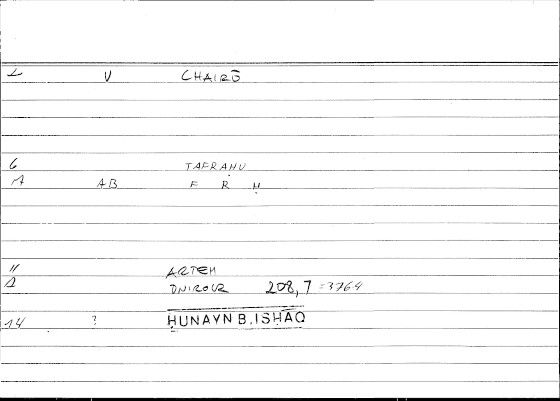 V CHAIRŌ
6 TAFRAḤU
A AB F R Ḥ
11 ARTEM
1 DNIROCR 208,7 =3764
14 ? ḤUNAYN B. ISḤAQ